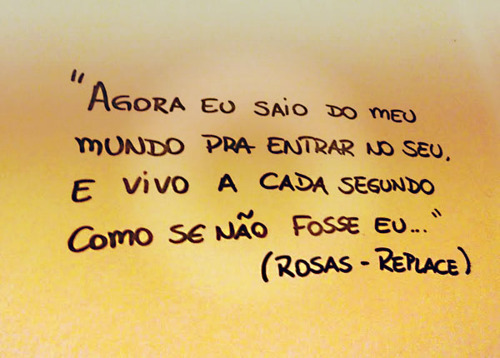 "AGORA EU SAIO DO MEU
MUNDO PRA ENTRAR NO SEU.
E VIVO A CADA SEGUNDO
COMO SE NÃO FOSSE EU..."
(ROSAS - REPLACE)